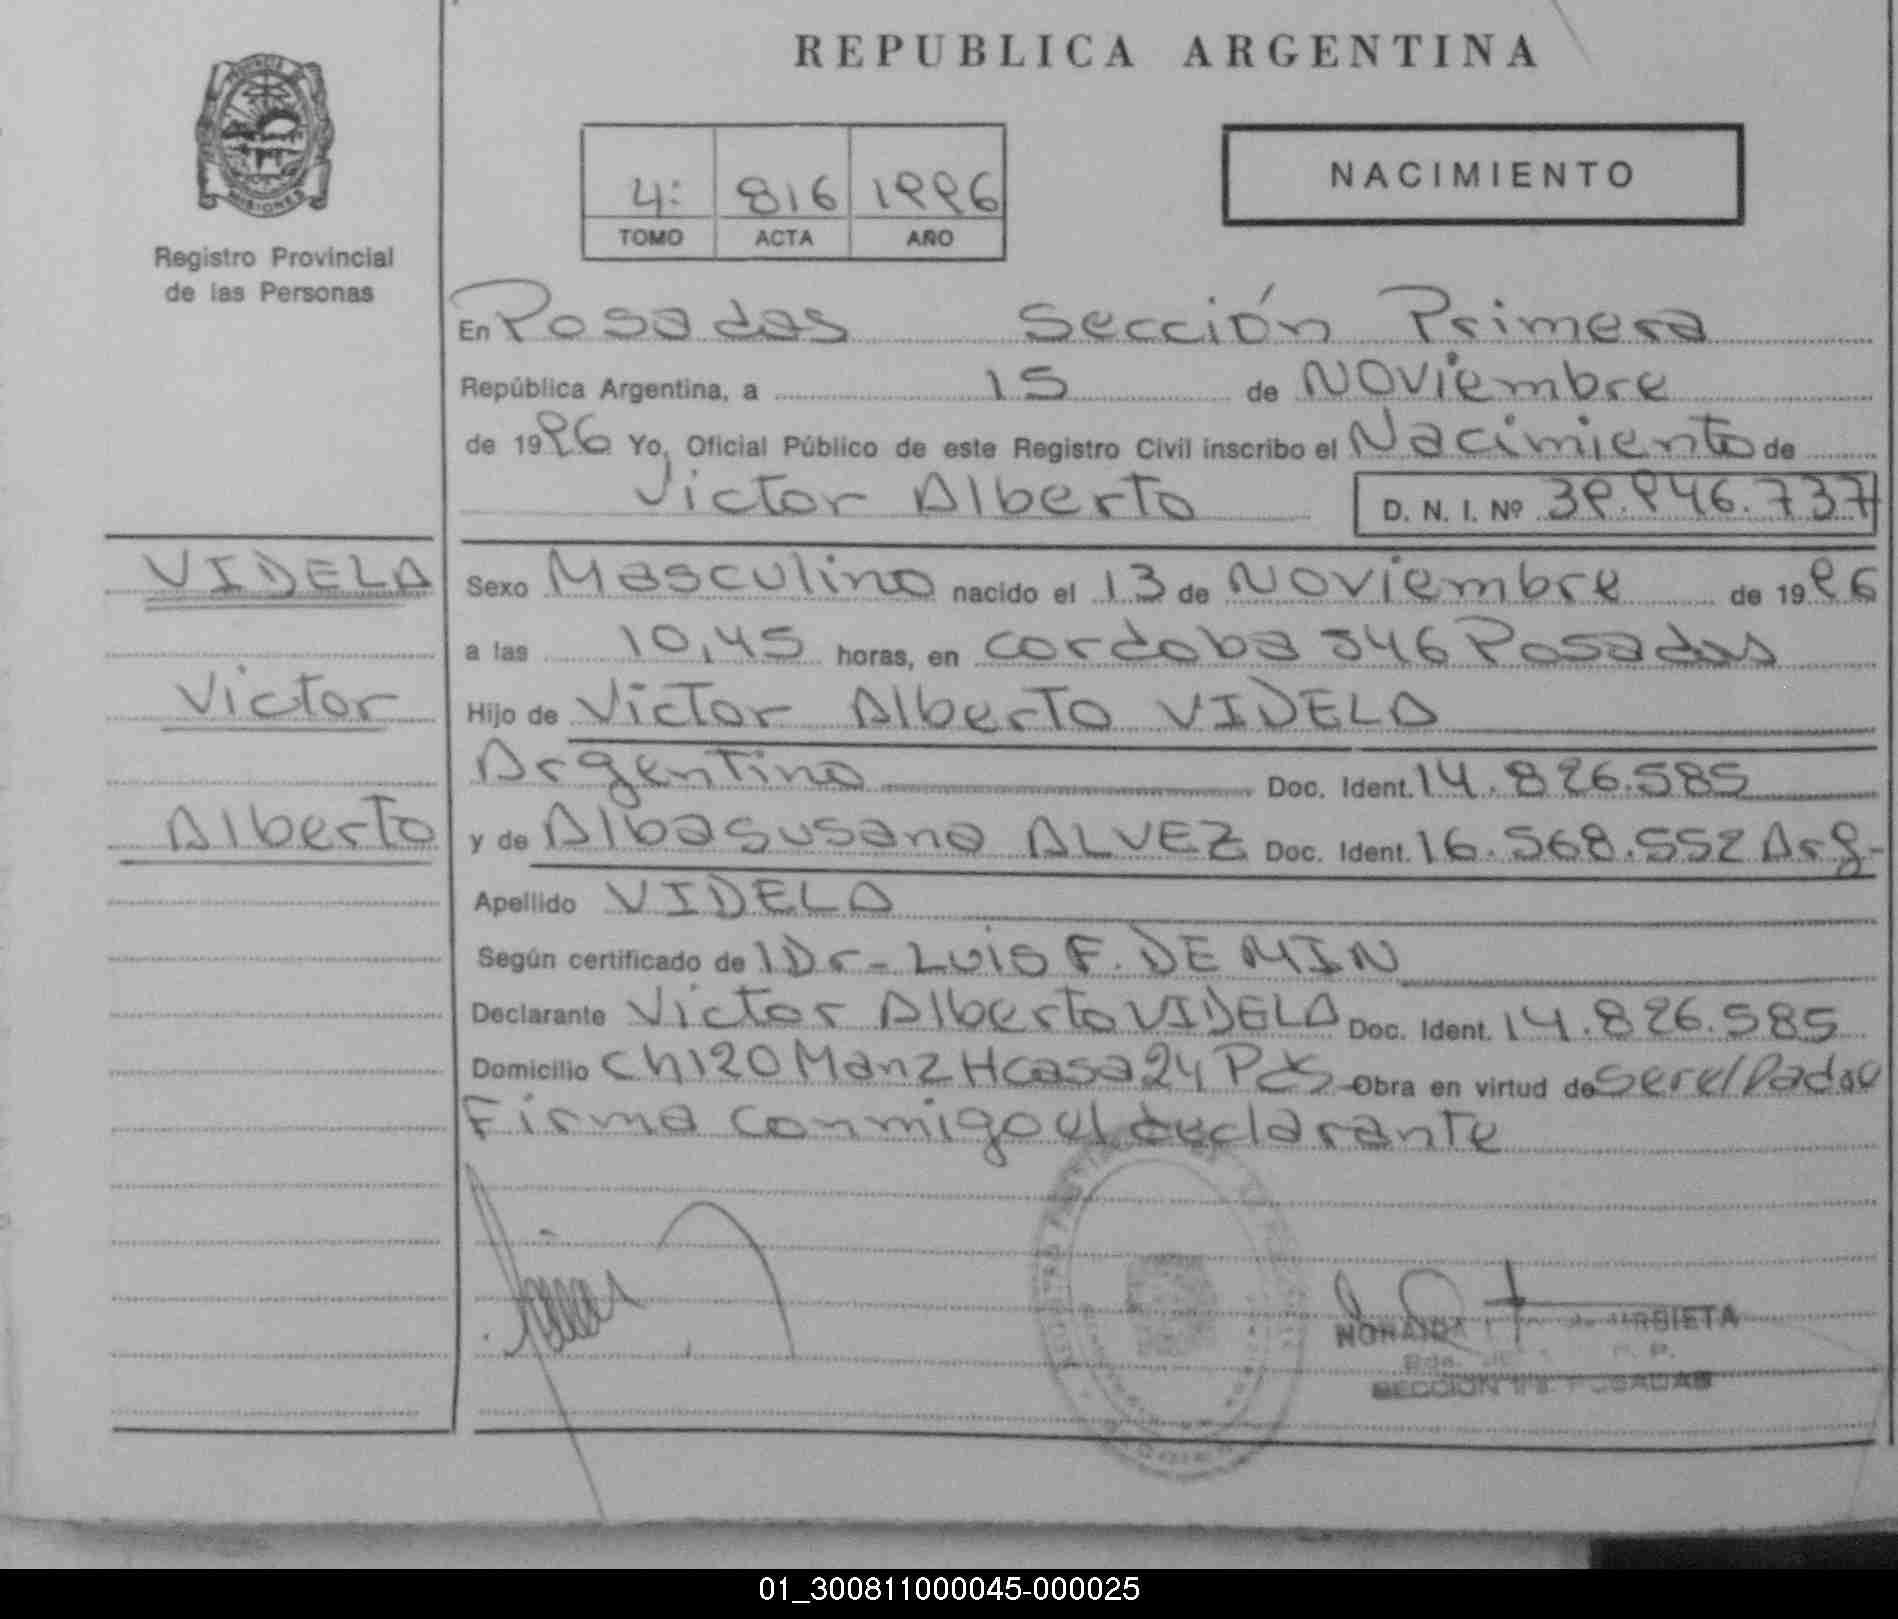 REPUBLICA ARGENTINA
PROVINCIA DE
MISIONES
Registro Provincial
de las Personas
4: 816 1996
TOMO ACTA AÑO
NACIMIENTO
En Posadas Sección Primera
República Argentina, a 15 de Noviembre
de 1996 Yo, Oficial Público de este Registro Civil inscribo el Nacimiento de
Victor Alberto D. N. I. Nº 39.946.737
VIDELA
Victor
Alberto
Sexo Masculino nacido el 13 de Noviembre de 1996
a las 10,45 horas, en cordoba 346 Posadas
Hijo de Victor Alberto VIDELA
Argentino Doc. Ident. 14.826.585
y de Alba Susana ALVEZ Doc. Ident. 16.568.552 Arg-
Apellido VIDELA
Según certificado de 1Dr- Luis F. DEMIN
Declarante Victor Alberto VIDELA Doc. Ident. 14.826.585
Domicilio Ch120 Manz H casa 24 Pdas Obra en virtud de ser el Padre
Firma conmigo el declarante
URBIETA
SECCION 1ra. POSADAS
01_300811000045-000025